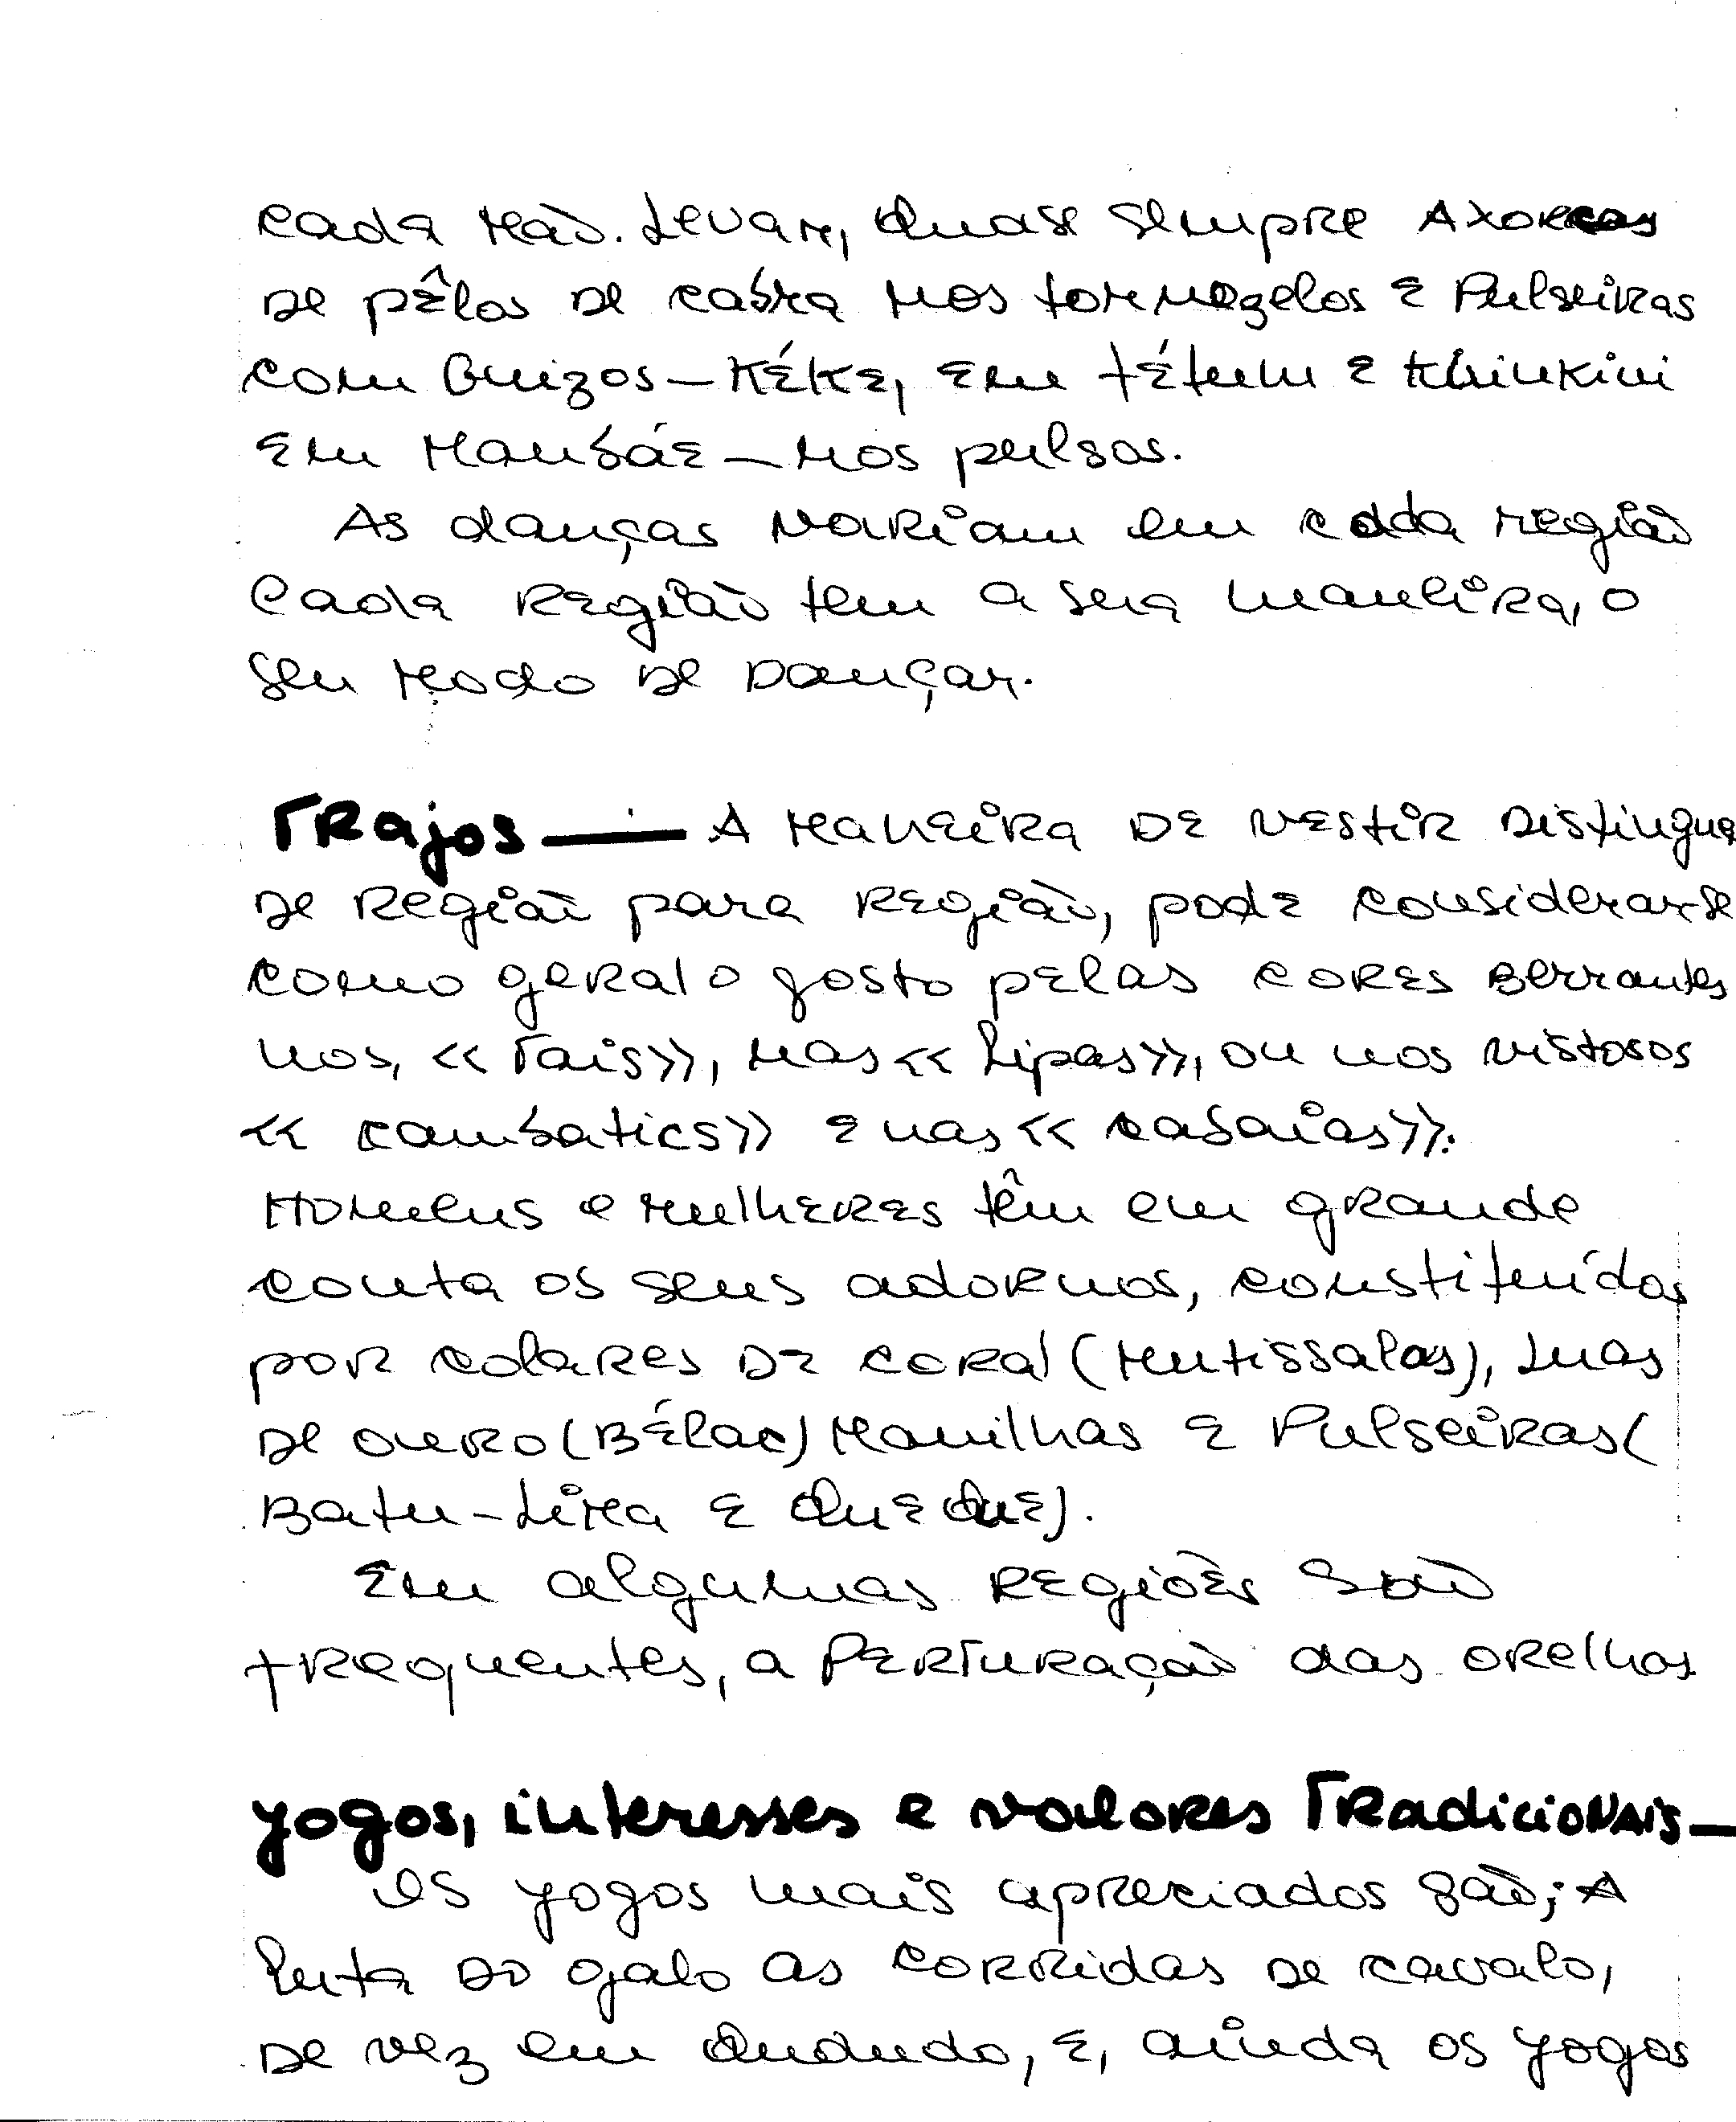 cada mão. Levam, quase sempre Axorcas
de pêlos de cabra nos tornozelos e Pulseiras
com Guizos — Kéke, em tétum e Khinkini
em Mambáe — nos pulsos.
As danças variam em cada região
Cada região tem a sua maneira, o
seu modo de Dançar.
Trajos — A maneira de vestir distingua
de região para região, pode considerar-se
como geral o gosto pelas cores Berrantes
nos, «Tais», nas «lipas», ou nos vistosos
«cambatics» e nas «cabaias».
Homens e mulheres têm em grande
conta os seus adornos, constituídos
por colares de coral (mutissalas), Luas
de ouro (Bélac) Manilhas e Pulseiras (
Batu-Lima e QueQue).
Em algumas regiões são
frequentes, a Perfuração das orelhas
yogos, interesses e valores Tradicionais —
Os yogos mais apreciados são; A
luta do galo as corridas de cavalo,
de vez em Quando, e, ainda os yogos